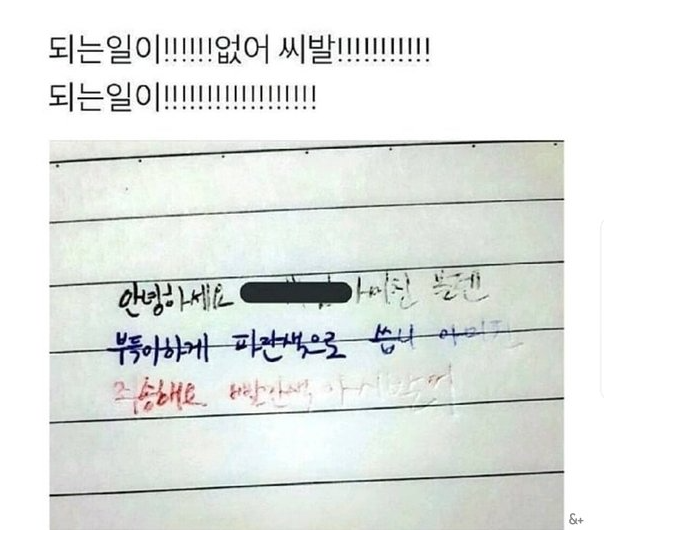 되는일이!!!!!!없어 씨발!!!!!!!!!!!
되는일이!!!!!!!!!!!!!!!!!!!
안녕하세요 아미친 볼펜
부득이하게 파란색으로 씁니 아미친
죄송해요 빨간색 아
&+